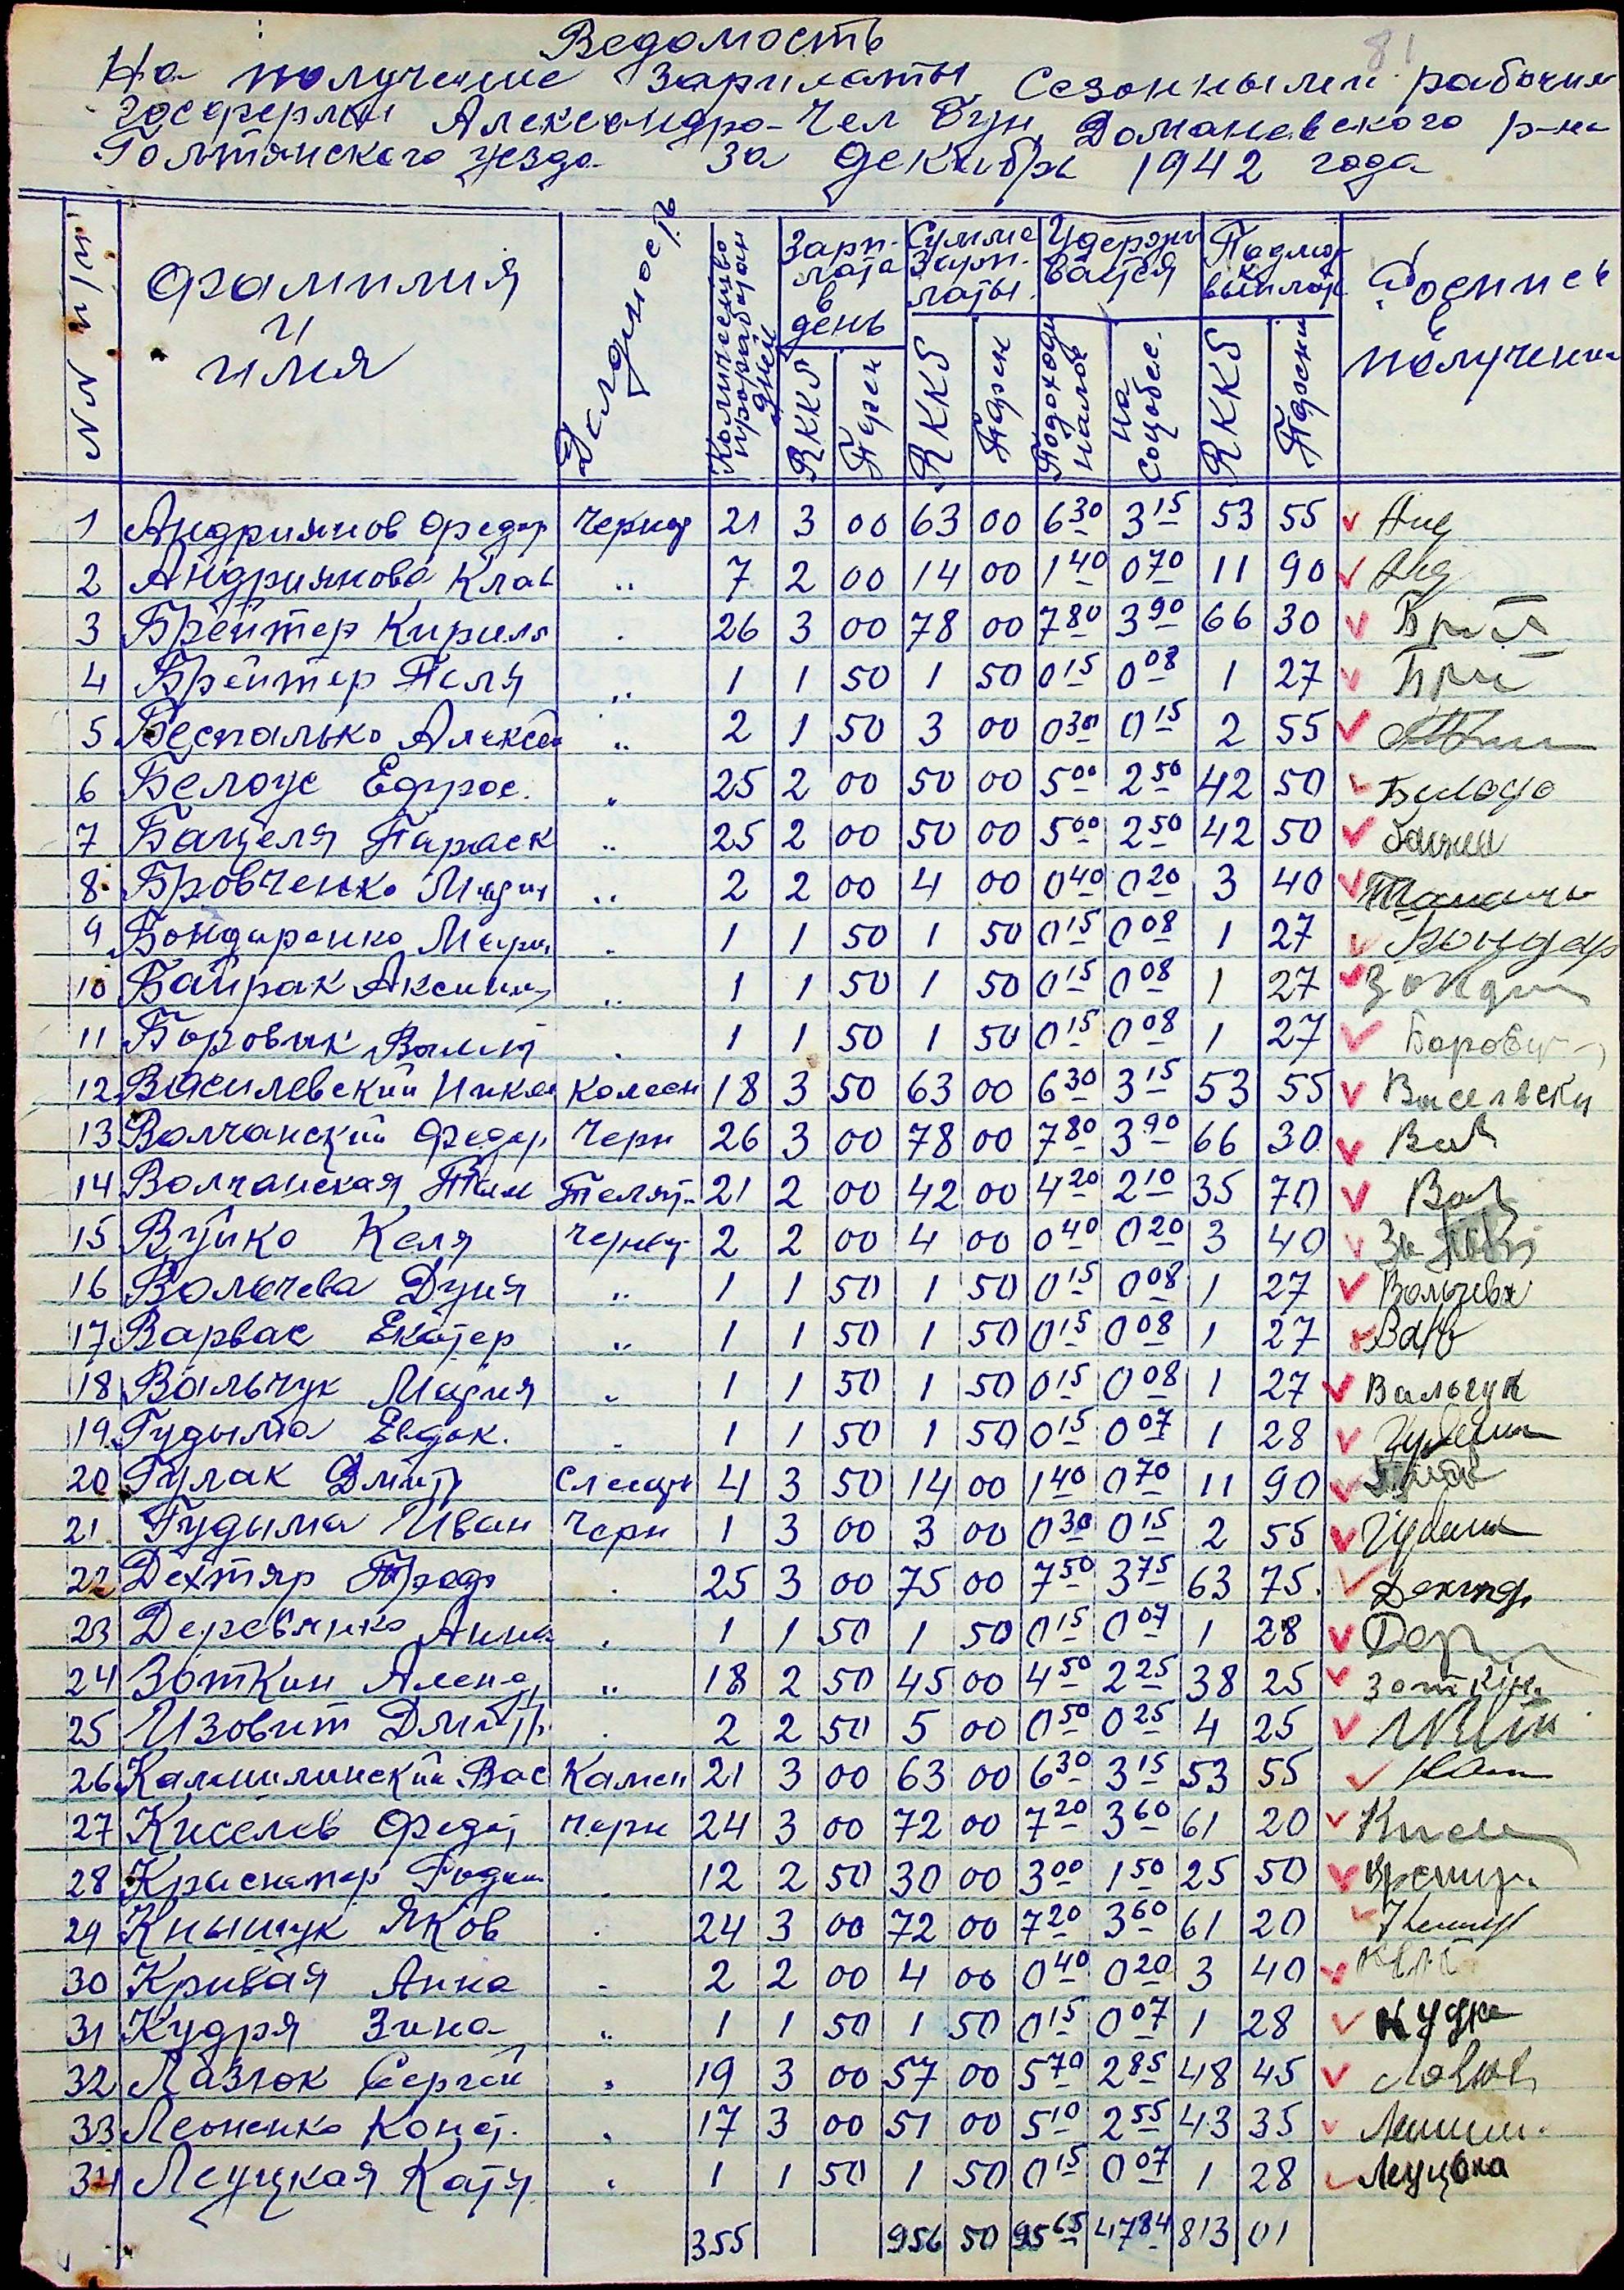 81
Ведомость
На получение зарплаты сезонными рабочим
госфермы Александро-Чел Бун, Доманевского р-на
Голтянского уезда за декабрь 1942 года
NN п/п фамилия и имя Должность Количество проработан дней Зарплата в день Сумма зарплаты Удерживается Подлеж к выплат Роспись в получении
RKKS Пфен RKKS Пфен Подоходн налог на соцобес. RKKS Пфени
1 Андриянов Федор Чернор 21 3 00 63 00 6 30 3 15 53 55 Анд
2 Андриянова Клав „ 7 2 00 14 00 1 40 0 70 11 90 Анд
3 Брейтер Кирилл „ 26 3 00 78 00 7 80 3 90 66 30
4 Брейтер Поля „ 1 1 50 1 50 0 15 0 08 1 27
5 Беспалько Алексе „ 2 1 50 3 00 0 30 0 15 2 55
6 Белоус Ефрос. „ 25 2 00 50 00 5 00 2 50 42 50 Билоус
7 Бацеля Параск „ 25 2 00 50 00 5 00 2 50 42 50
8 Бровченко Мария „ 2 2 00 4 00 0 40 0 20 3 40
9 Бондаренко Мари „ 1 1 50 1 50 0 15 0 08 1 27 Бондар
10 Байрак Аксинья „ 1 1 50 1 50 0 15 0 08 1 27
11 Боровик Валент „ 1 1 50 1 50 0 15 0 08 1 27 Борови
12 Василевский Никол Колесн 18 3 50 63 00 6 30 3 15 53 55 Васелвски
13 Волчанский Федор Черн 26 3 00 78 00 7 80 3 90 66 30 Вол
14 Волчанская Там Телят. 21 2 00 42 00 4 20 2 10 35 70 Вол
15 Вуйко Келя Чернор 2 2 00 4 00 0 40 0 20 3 40 За
16 Волычева Дуня „ 1 1 50 1 50 0 15 0 08 1 27 Волычева
17 Варвас Екатер „ 1 1 50 1 50 0 15 0 08 1 27 Варв
18 Вальчук Мария „ 1 1 50 1 50 0 15 0 08 1 27 Вальчук
19 Гудыма Евдок. „ 1 1 50 1 50 0 15 0 07 1 28 Гудыма
20 Гулак Дмитр Слесарь 4 3 50 14 00 1 40 0 70 11 90 Гулак
21 Гудыма Иван Черн 1 3 00 3 00 0 30 0 15 2 55 Гудыма
22 Дехтяр Прод „ 25 3 00 75 00 7 50 3 75 63 75 Дехтяр
23 Деревянко Анна „ 1 1 50 1 50 0 15 0 07 1 28 Дер
24 Зоткин Алена „ 18 2 50 45 00 4 50 2 25 38 25 Зоткін
25 Изовит Дмитр. „ 2 2 50 5 00 0 50 0 25 4 25
26 Калинилинский Вас Камен 21 3 00 63 00 6 30 3 15 53 55
27 Киселев Федот Черн 24 3 00 72 00 7 20 3 60 61 20 Кисел
28 Краснопер Родион „ 12 2 50 30 00 3 00 1 50 25 50
29 Кнышук Яков „ 24 3 00 72 00 7 20 3 60 61 20
30 Кривая Анна „ 2 2 00 4 00 0 40 0 20 3 40
31 Кудря Зина „ 1 1 50 1 50 0 15 0 07 1 28 Кудря
32 Лазюк Сергей „ 19 3 00 57 00 5 70 2 85 48 45
33 Леоненко Конст. „ 17 3 00 51 00 5 10 2 55 43 35
34 Леуцкая Катя „ 1 1 50 1 50 0 15 0 07 1 28 Леуцька
355 956 50 95 65 47 84 813 01